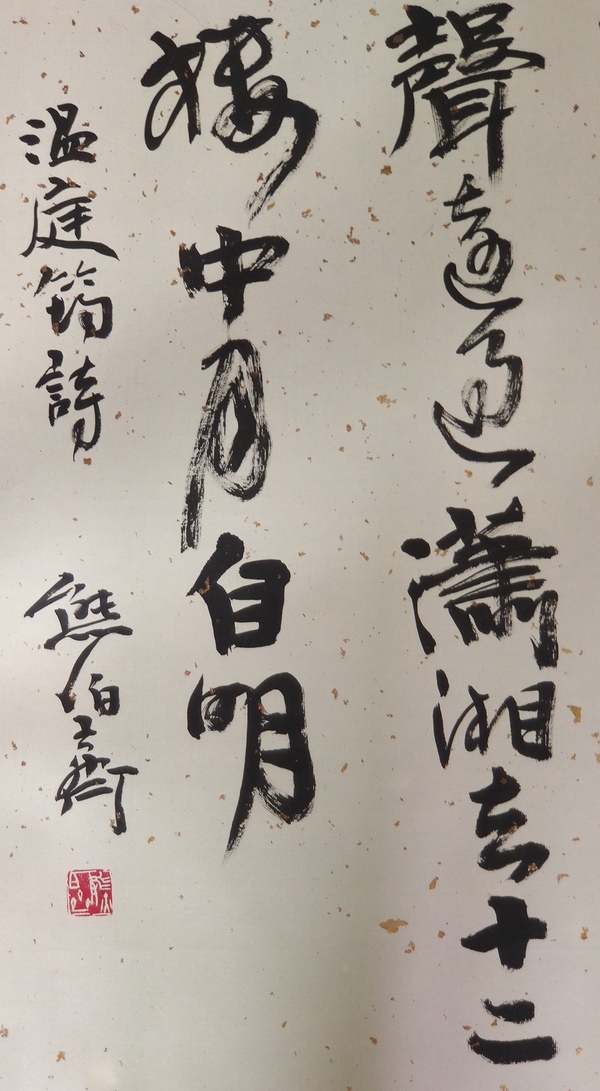 聲遠過瀟湘去十二
樓中月自明
溫庭筠詩
熊伯齊